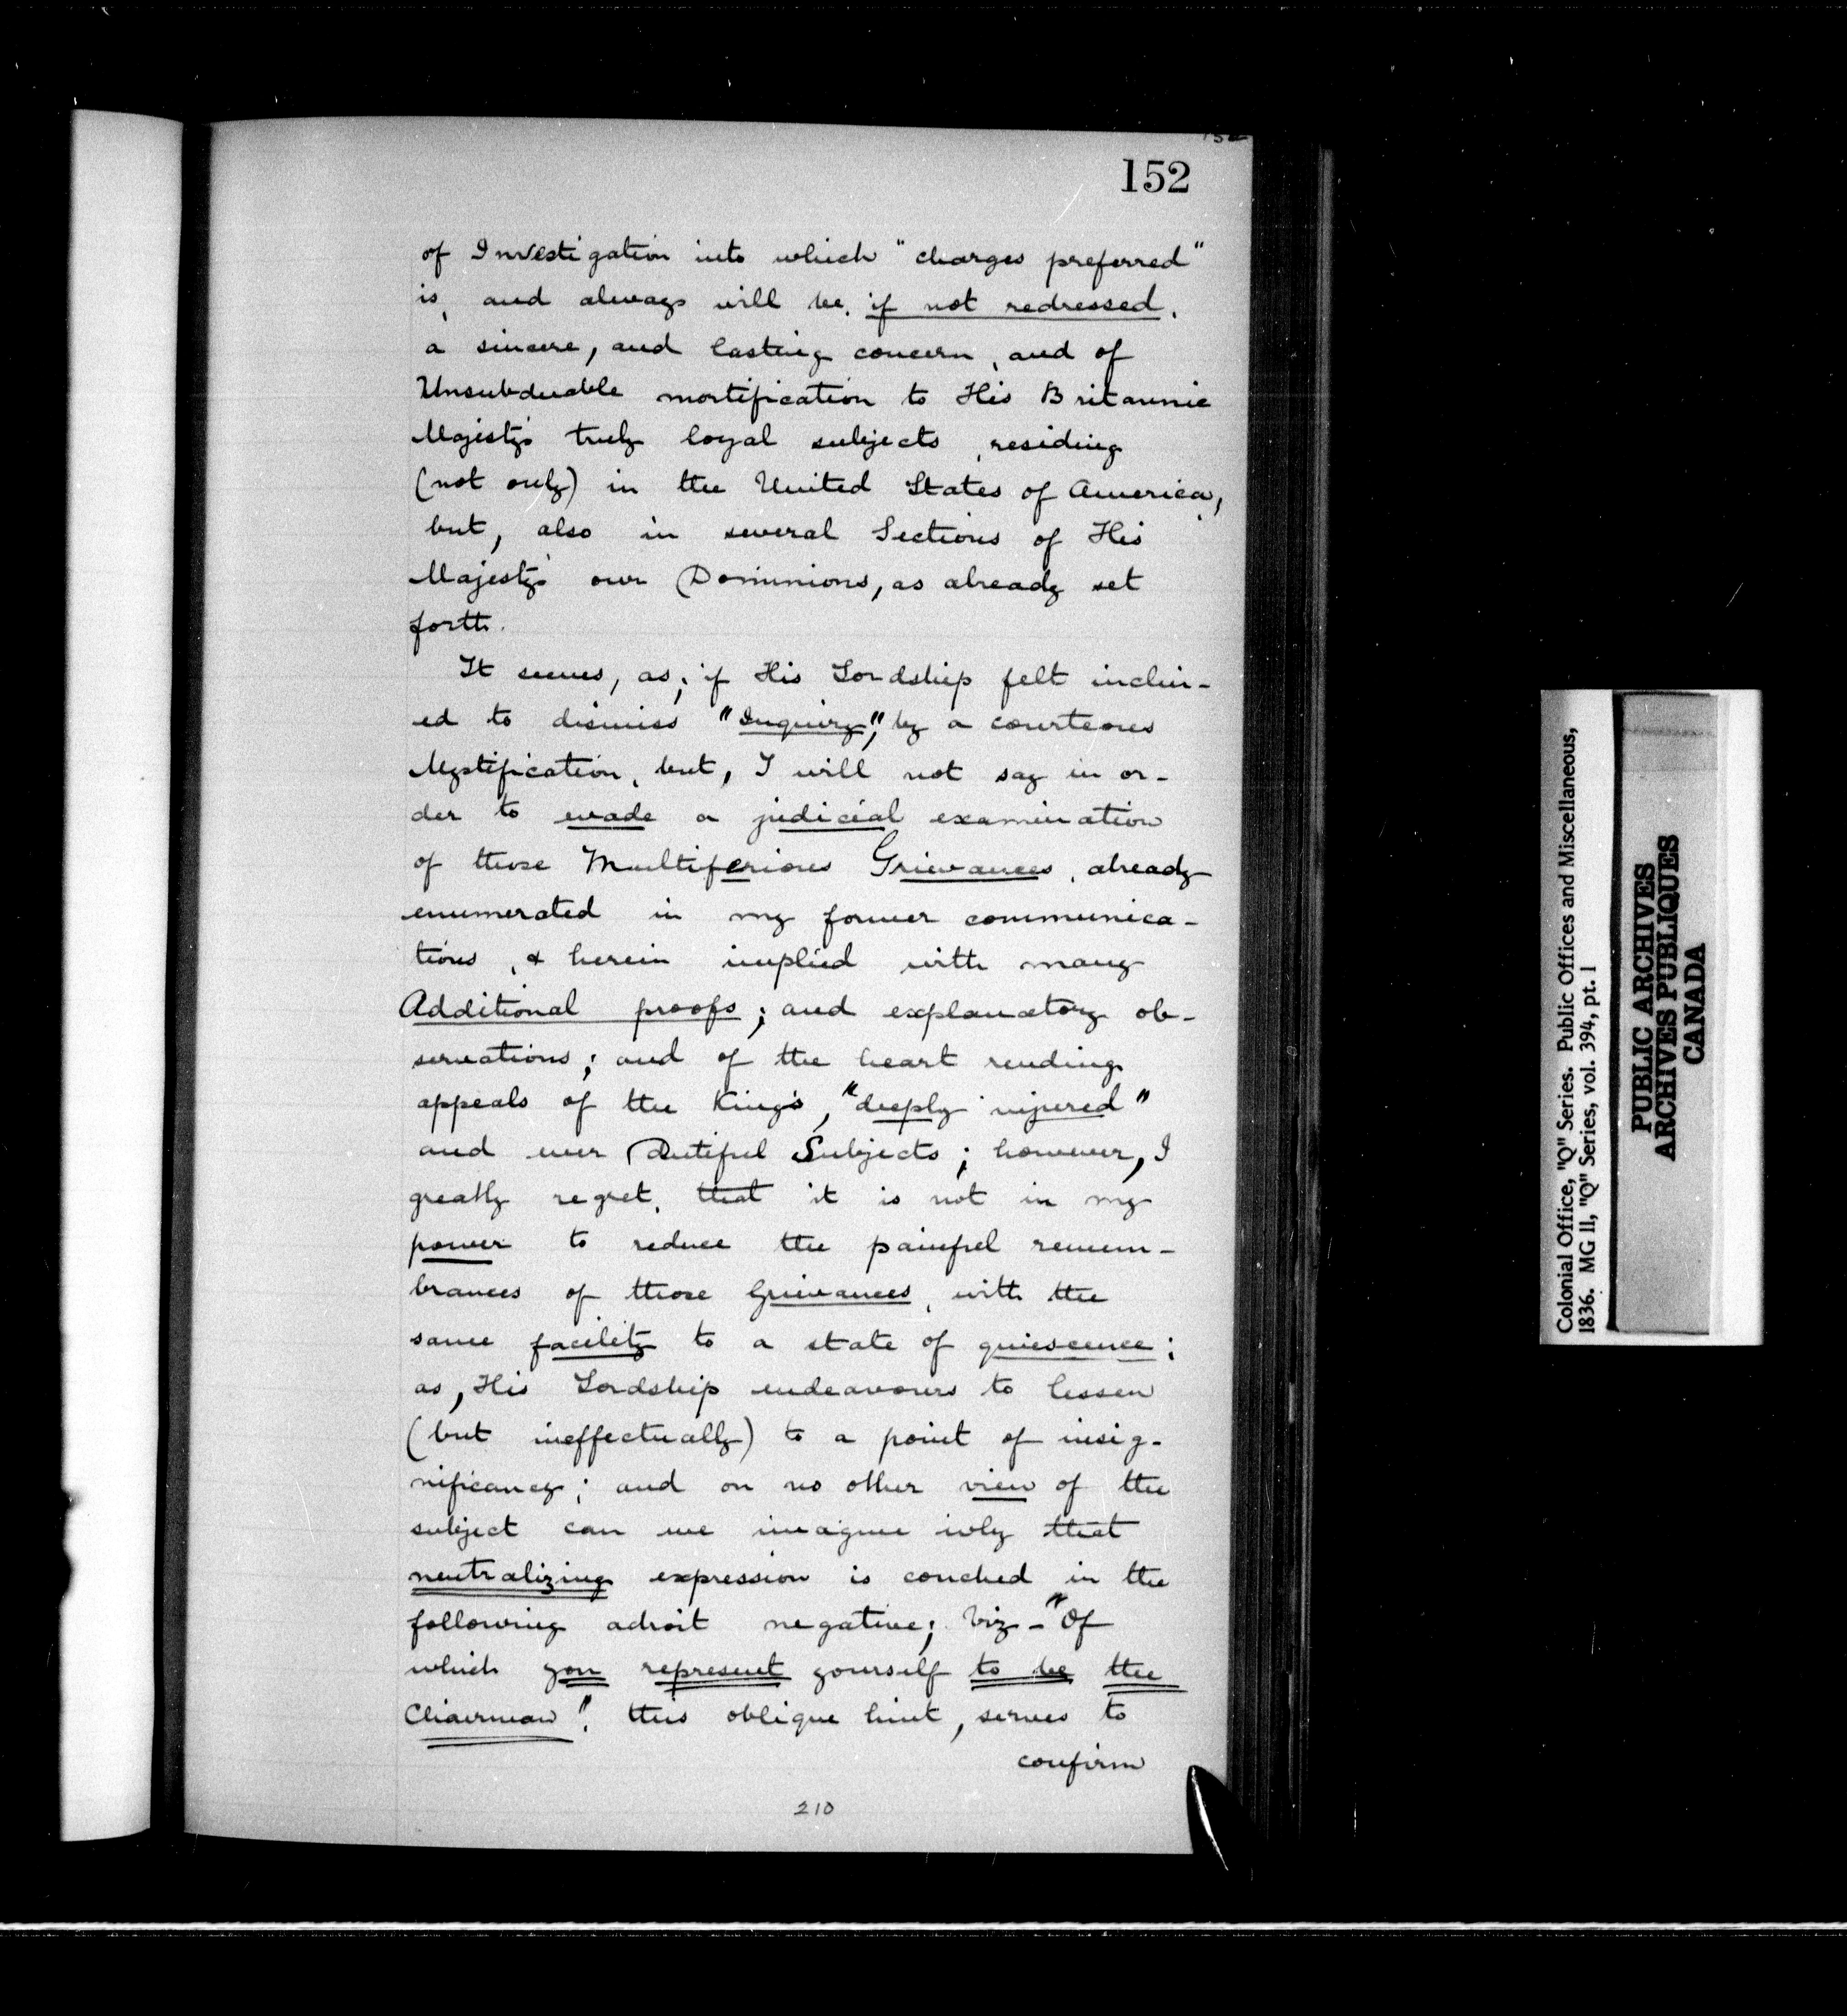 152
of Investigation into which "charges preferred"
is, and always will be, if not redressed,
a sincere, and lasting concern, and of
Unsubduable mortification to His Britannic
Majesty's truly loyal subjects, residing
(not only) in the United States of America,
but, also in several Sections of His
Majesty's own Dominions, as already set
forth.
It seems, as, if His Lordship felt inclin-
ed to dismiss "Inquiry", by a courteous
Mystification, but, I will not say in or-
der to evade a judicial examination
of those Multiferious Grievances, already
enumerated in my former communica-
tions, & herein implied with many
Additional proofs; and explanatory ob-
servations; and of the heart rending
appeals of the King's, "deeply injured"
and ever Dutiful Subjects; however, I
greatly regret, that it is not in my
power to reduce the painful remem-
brances of those Grievances, with the
same facility to a state of quiescence;
as, His Lordship endeavours to lessen
(but ineffectually) to a point of insig-
nificancy; and on no other view of the
subject can we imagine why that
neutralizing expression is couched in the
following adroit negative; Viz - "Of
which you represent yourself to be the
Chairman". this oblique hint, serves to
confirm
210
Colonial Office, "Q" Series. Public Offices and Miscellaneous,
1836. MG 11, "Q" Series, vol. 394, pt. 1
PUBLIC ARCHIVES
ARCHIVES PUBLIQUES
CANADA